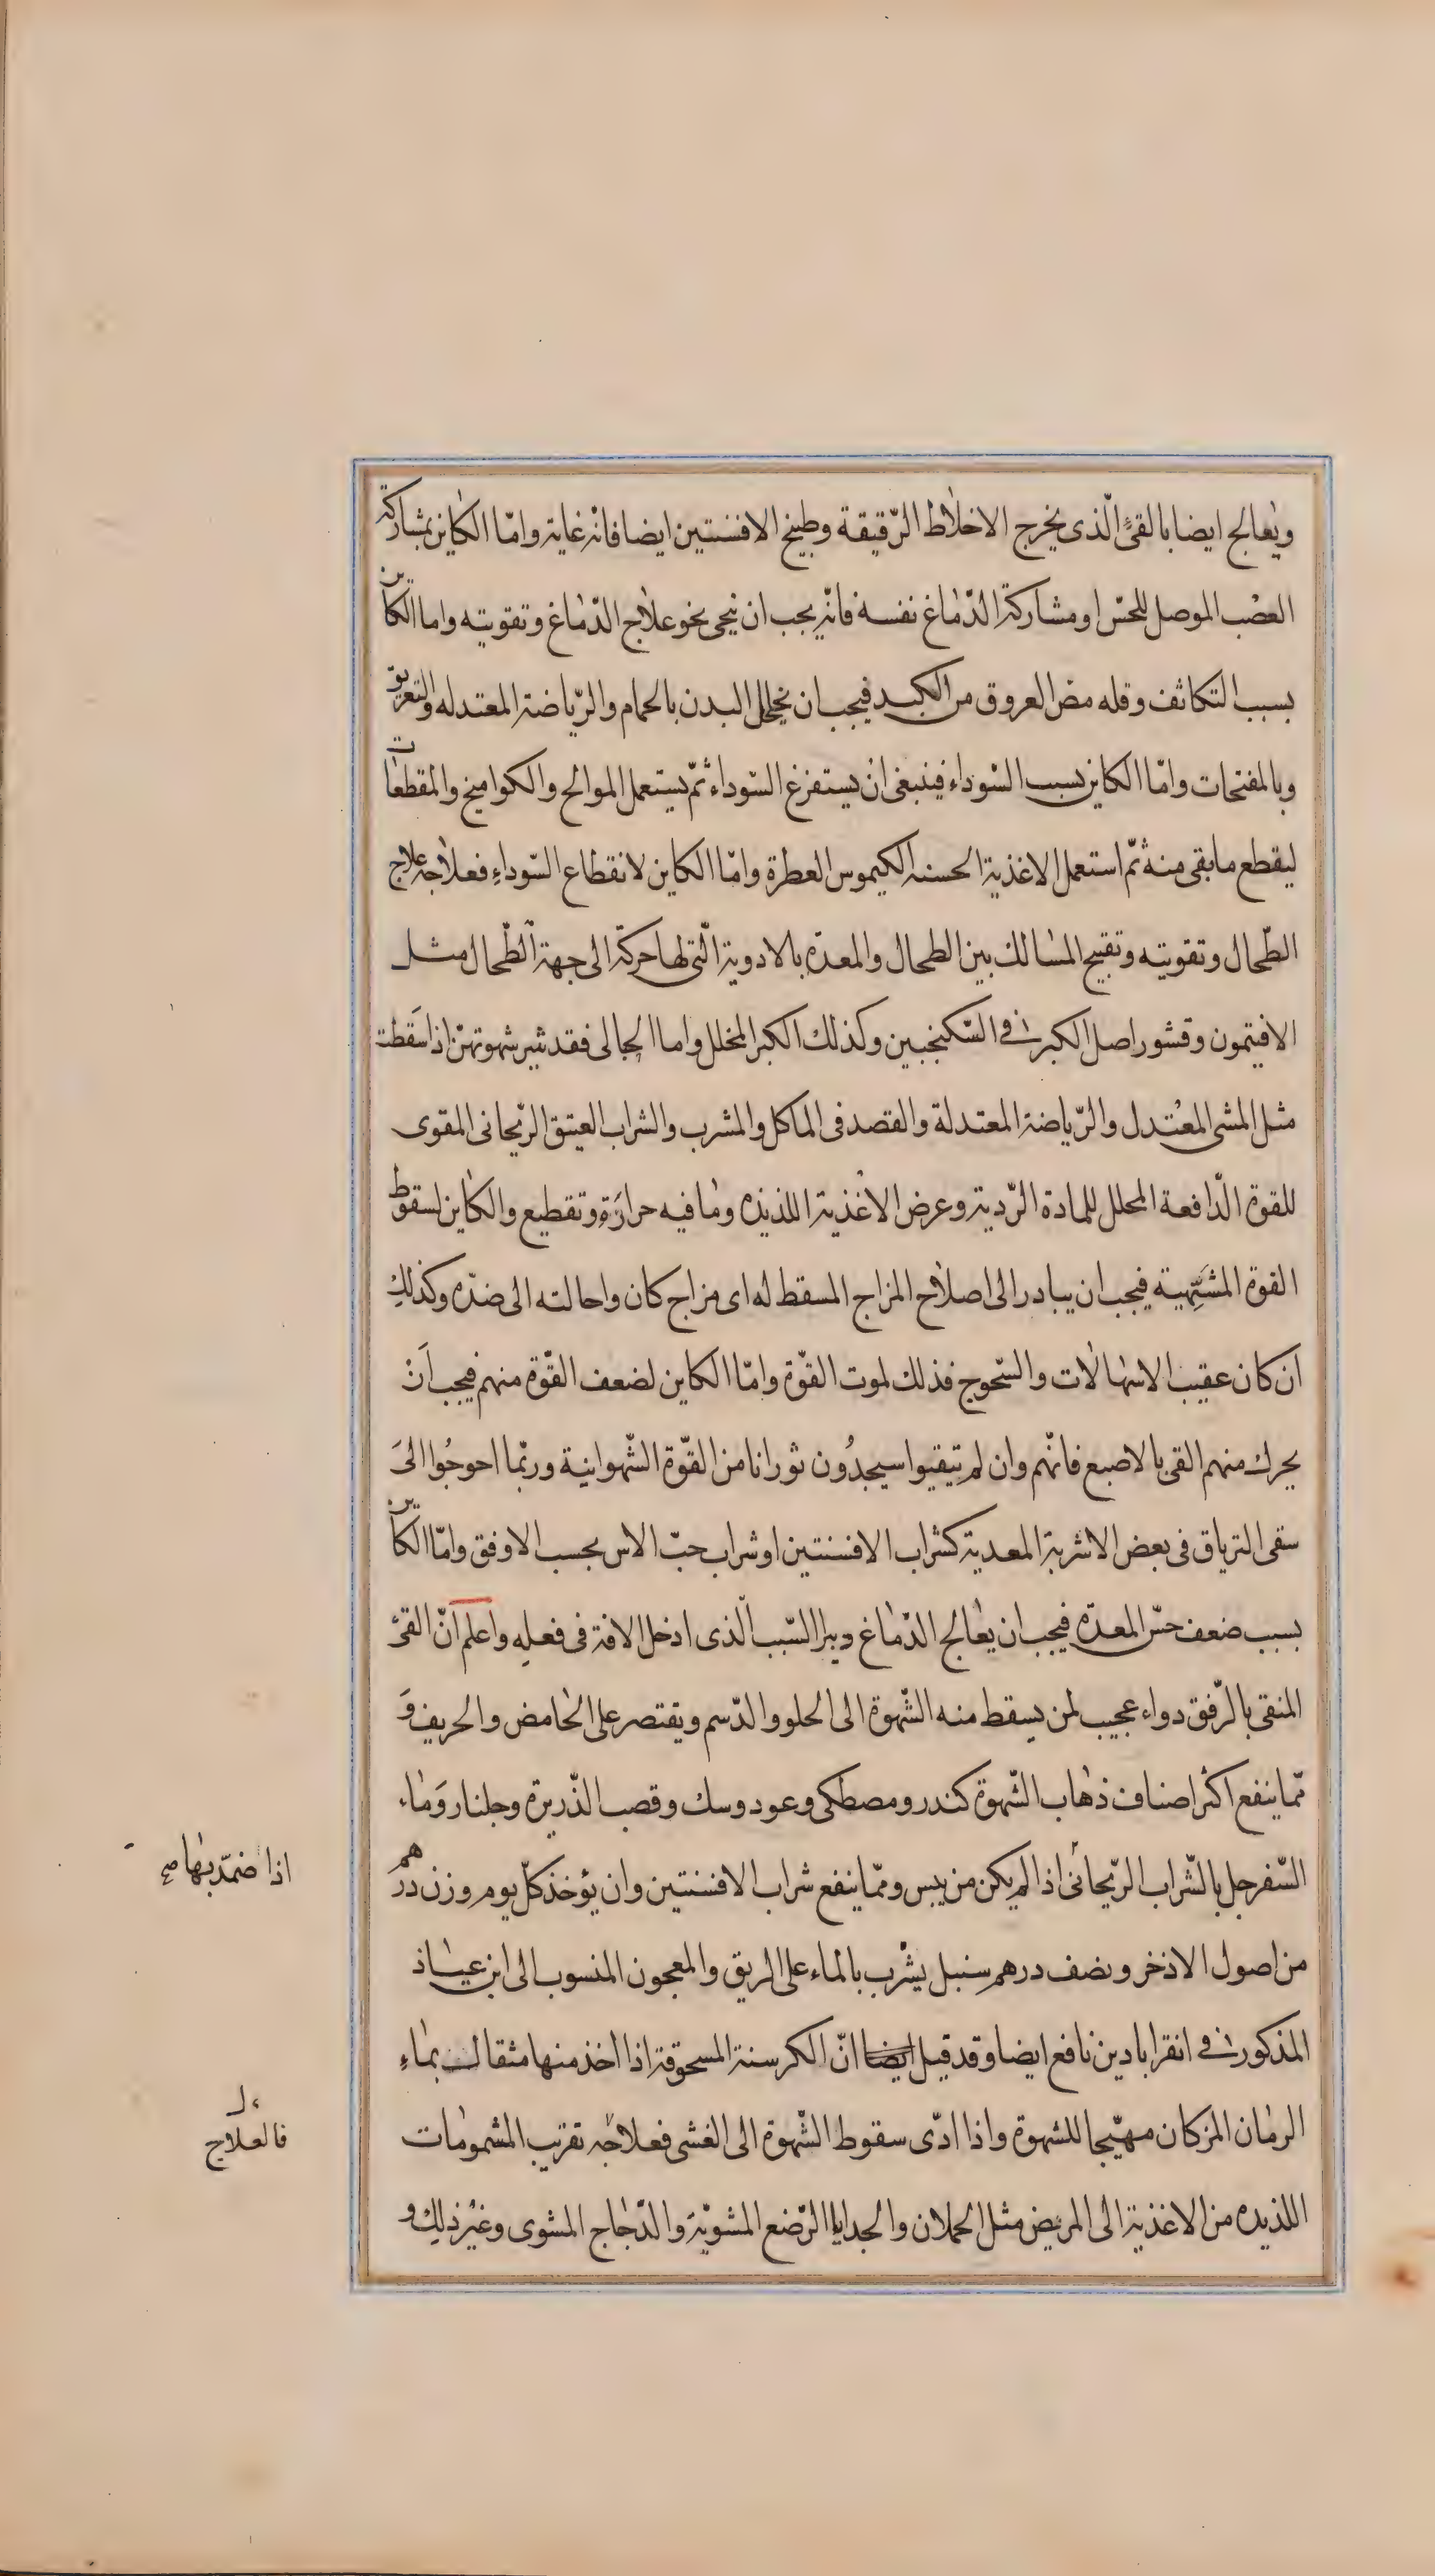 ويعالج ايضا بالقئ الّذى يخرج الاخلاط الرّقيقة وطبيخ الافسنتين ايضا فانه غاية وامّا الكاين بمشاركة
العصب الموصل للحسّ او مشاركة الدّماغ نفسه فانّه يجب ان ينحى نحو علاج الدّماغ وتقويته واما الكاين
بسبب التكاثف وقله مص العروق من الكبد فيجب ان يخلخل البدن بالحمام والرّياضة المعتدله والتعريق
وبالمفتحات وامّا الكاين بسبب السّوداء فينبغى ان يستفرغ السّوداء ثمّ يستعمل الموالح والكواميخ والمقطعات
ليقطع ما بقى منه ثمّ استعمل الاغذية الحسنه الكيموس العطرة وامّا الكاين لانقطاع السّوداء فعلاجه علاج
الطّحال وتقويته وتفتيح المسالك بين الطحال والمعدّه بالادوية الّتى لها حركة الى جهة الطّحال مثل
الافتيمون وقشور اصل الكبر فى السّكنجبين وكذلك الكبر المخلل واما الحبالى فقد يثير شهوتهنّ اذا سقطت
مثل المشى المعتدل والرّياضة المعتدلة والقصد فى الماكل والمشرب والشراب العتيق الرّيحانى المقوى
للقوة الدّافعة المحلل للمادة الرّدية وعرض الاغذية اللذيذه وما فيه حرارة وتقطيع والكاين لسقوط
القوة المشتهية فيجب ان يبادر الى اصلاح المزاج المسقط له اى مزاج كان واحالته الى ضدّه وكذلك
ان كان عقيب الاسهالات والسّحوج فذلك لموت القوّة وامّا الكاين لضعف القوّة منهم فيجب ان
يحرك منهم القى بالاصبع فانّهم وان لم يتقيوا سيجدون ثورانا من القوّة الشّهوانية وربّما احوجوا الى
سقى الترياق فى بعض الاشربة المعدية كشراب الافسنتين او شراب حبّ الاس بحسب الاوفق وامّا الكاين
بسبب ضعف حسّ المعدّه فيجب ان يعالج الدّماغ ويبرا السّبب الّذى ادخل الافة فى فعله واعلم انّ القئ
المنقى بالرّفق دواء عجيب لمن يسقط منه الشّهوة الى الحلو والدّسم ويقتصر على الحامض والحريف و
ممّا ينفع اكثر اصناف ذهاب الشّهوة كندر ومصطكى وعود وسك وقصب الذّريرة وجلنار وماء
السّفرجل بالشّراب الرّيحانى اذا لم يكن من يبس وممّا ينفع شراب الافسنتين وان يؤخذ كلّ يوم وزن درهم
من اصول الاذخر ونصف درهم سنبل يشرب بالماء على الريق والمعجون المنسوب الى ابن عياذ
المذكور فى انقراباذين نافع ايضا وقد قيل ايضا انّ الكرسنة المسحوقة اذا اخذ منها مثقال بماء
الرمان المز كان مهيّجا للشهوة واذا ادّى سقوط الشّهوة الى الغشى فعلاجه تقريب المشمومات
اللذيذه من الاغذية الى المريض مثل الحملان والجدايا الرّضع المشويّة والدّجاج المشوى وغير ذلك و
اذا ضمّد بها صح
فالعلاج